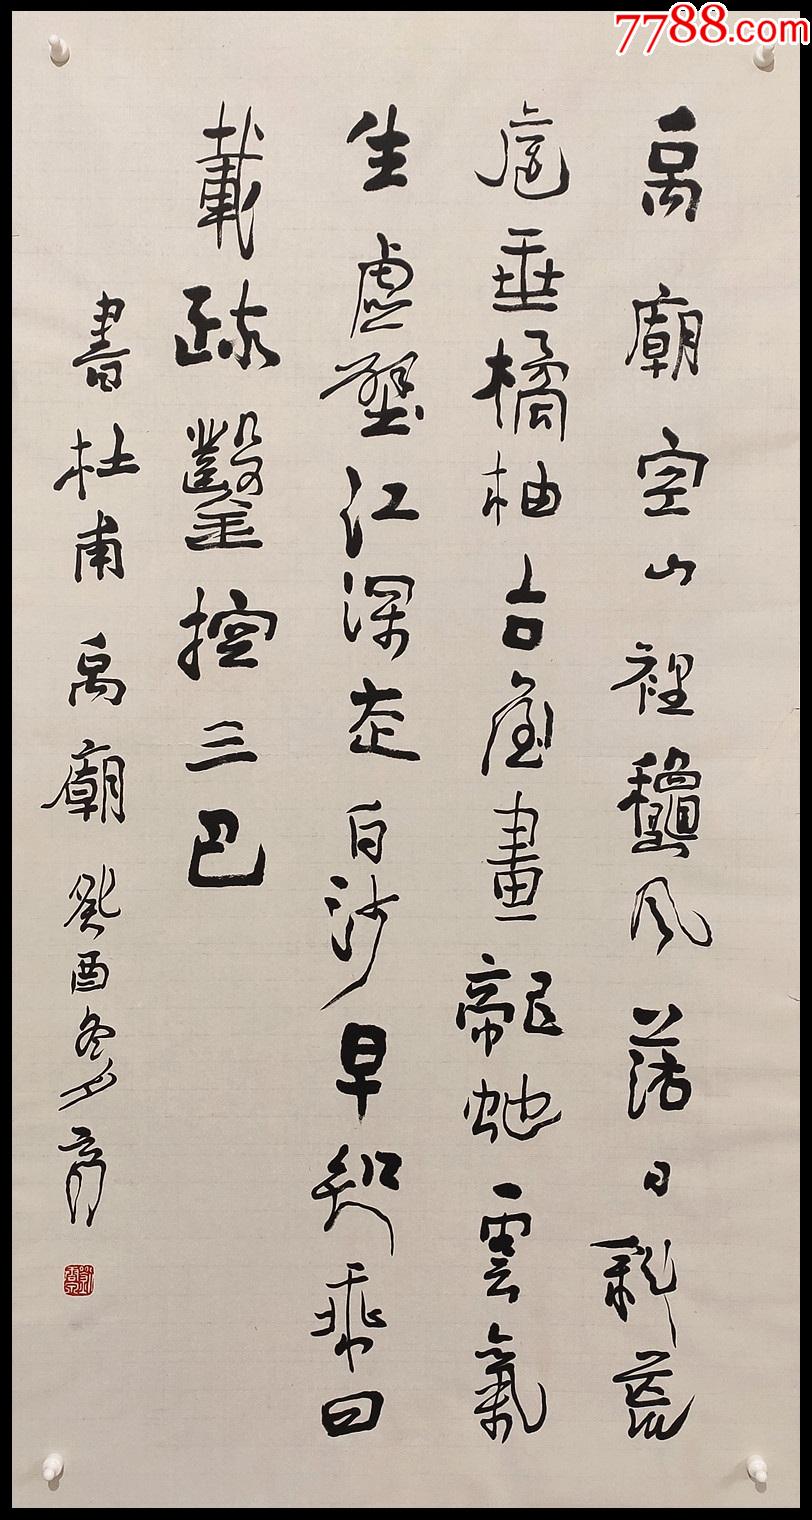 7788.com
禹廟空山裡龝風落日斜荒
庭垂橘柚古屋畫龍蛇雲氣
生虛壁江深走白沙早知乘四
載疏鑿控三巴
書杜甫禹廟癸酉冬